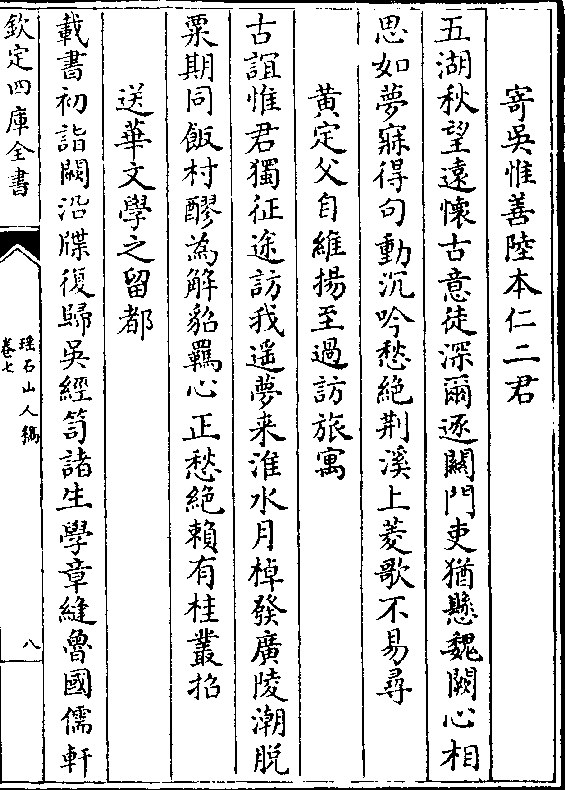 寄吳惟善陸本仁二君
五湖秋望遠懷古意徒深爾逐闕門吏猶懸魏闕心相
思如夢寐得句動沉吟愁絶荆溪上菱歌不易尋
黄定父自維揚至過訪旅寓
古誼惟君獨征途訪我遥夢来淮水月棹發廣陵潮脱
粟期同飯村醪為解貂羈心正愁絶賴有桂叢招
送華文學之留都
載書初詣闕沿牒復歸吳經笥諸生學章縫魯國儒軒
欽定四庫全書
瑤石山人稿
卷七
八